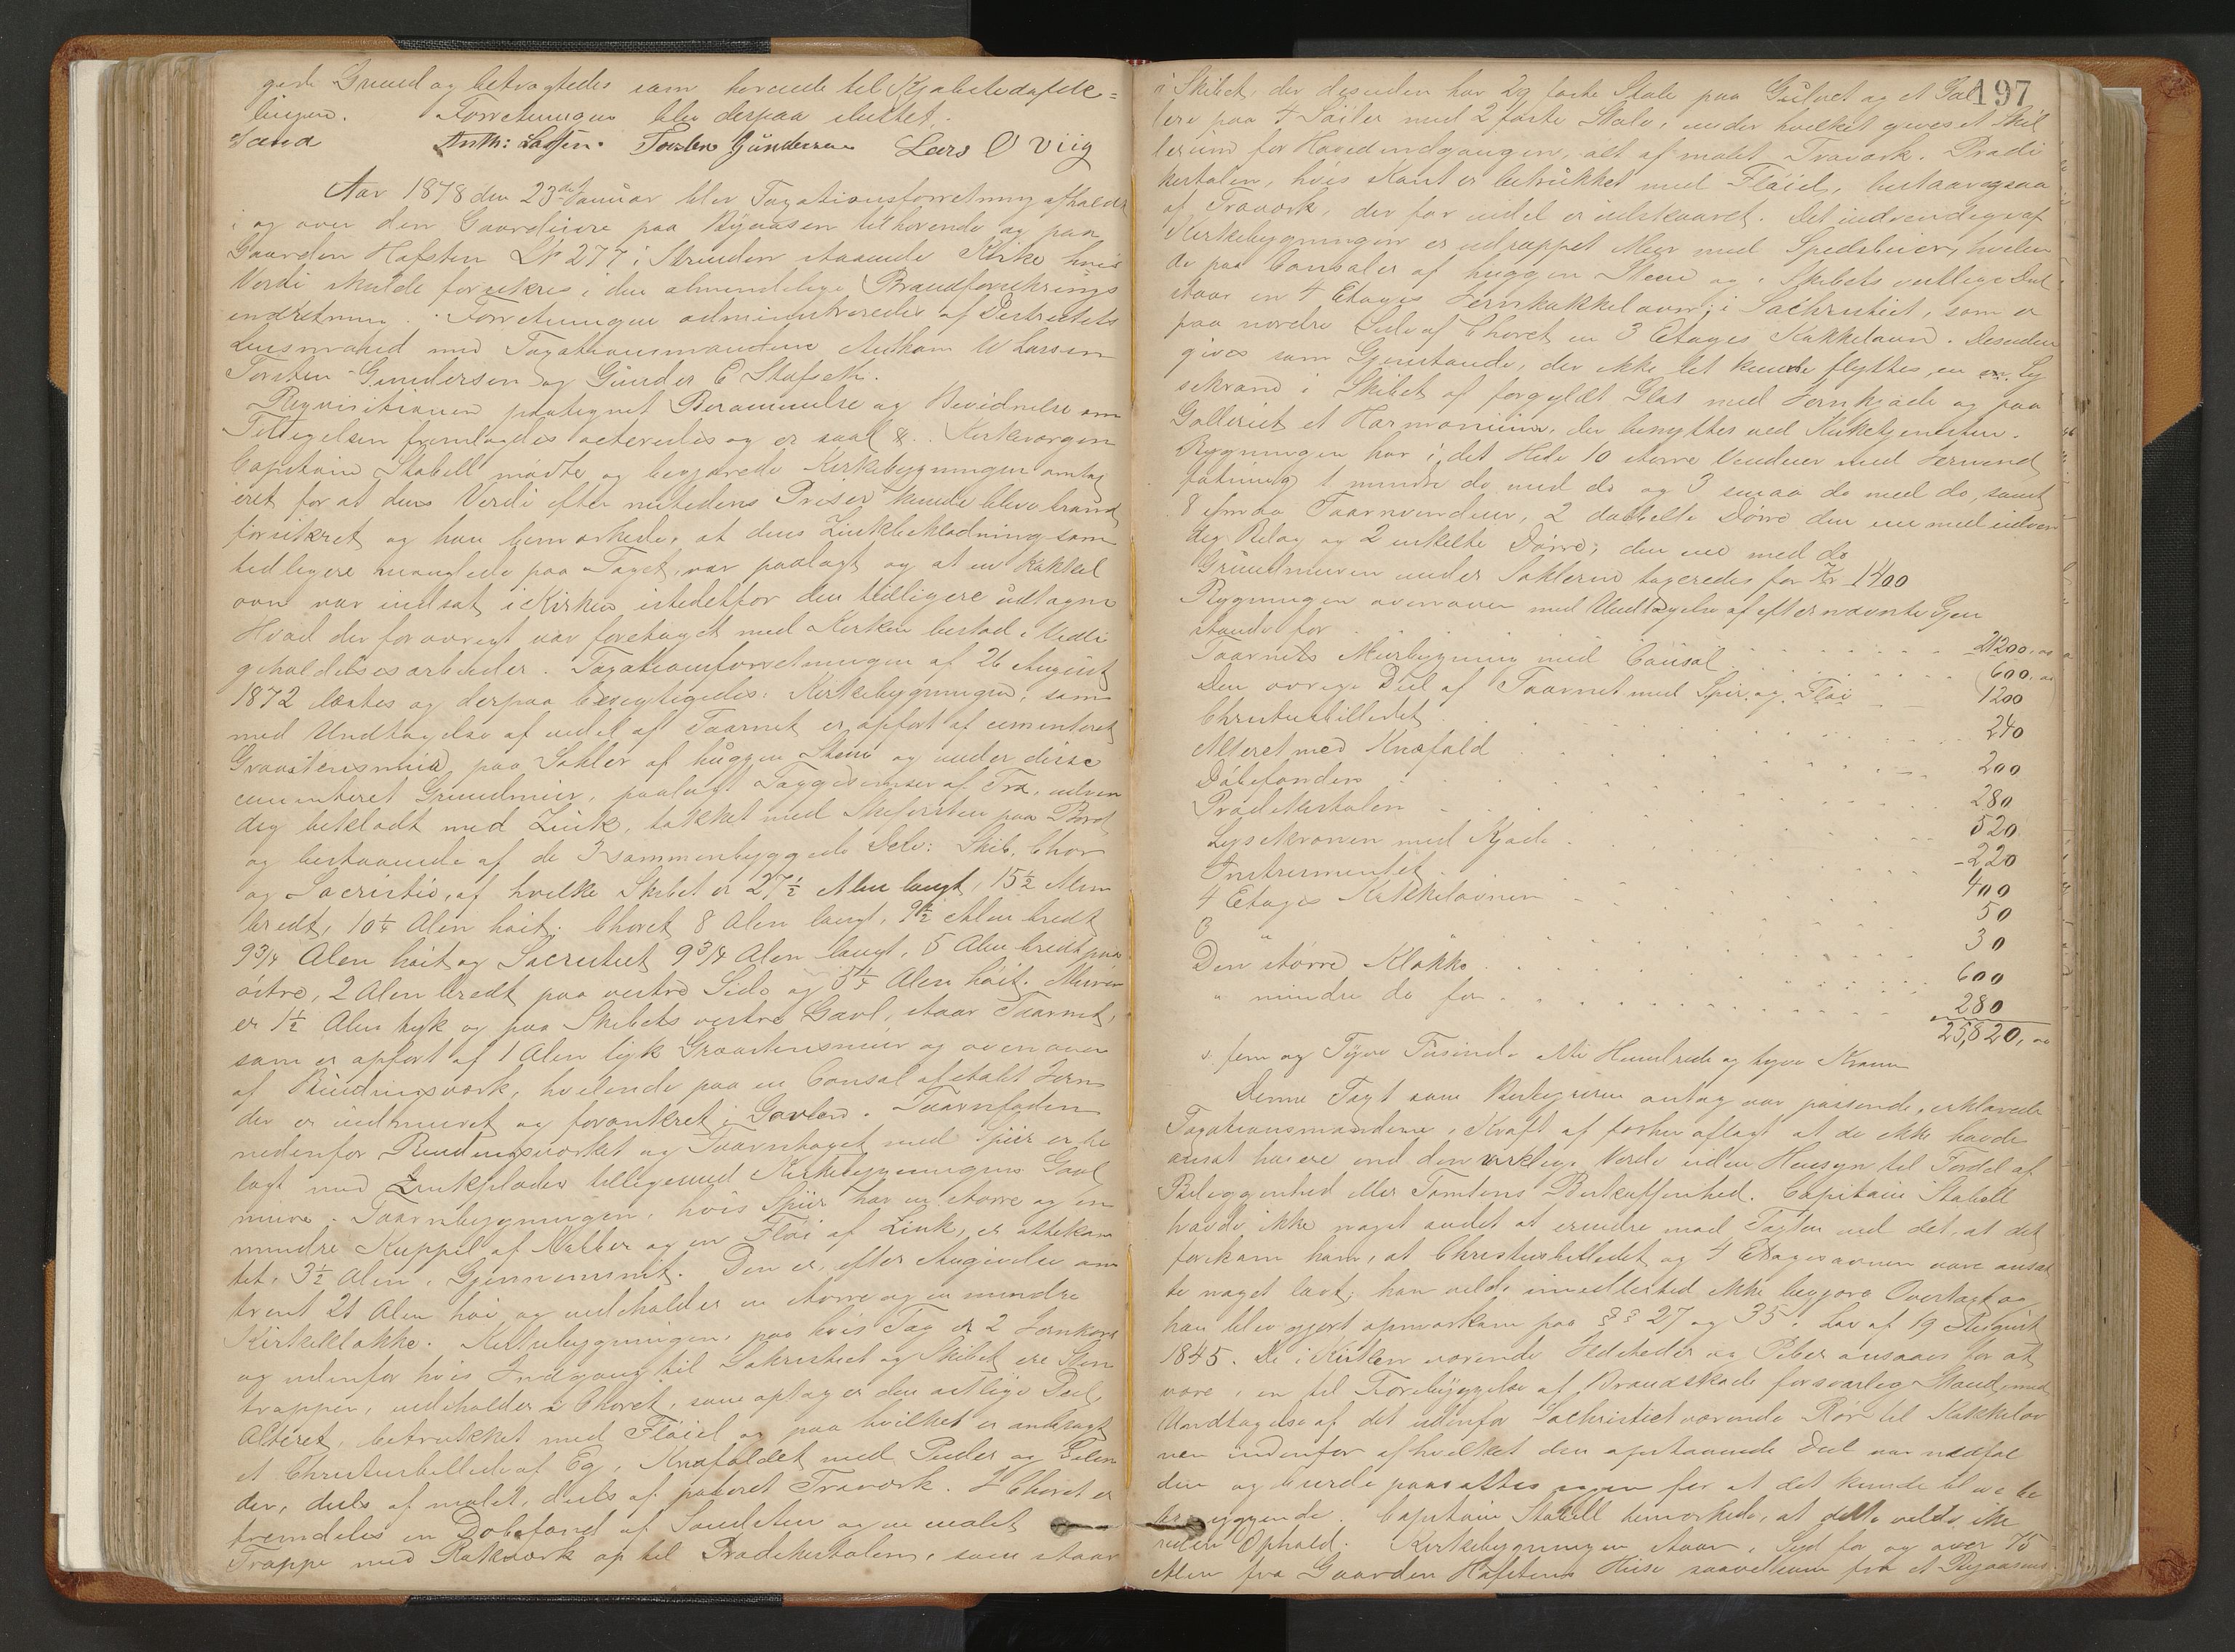 gede Grund og betragtedes som herende til Kjøbstedafde=
lingen. Forretningen blev derpaa sluttet.
Sand Anth: Larsen. Torsten Gundersen Lars O Viig
Aar 1878 den 23de Januar blev Taxationsforretning afholdt
i og over den Gaardeiere paa Byaasen tilhørende og paa
Gaarden Hafsten LN 277 i Strinden staaende Kirke hvis
Verdi skulde forsikres i den almindelige Brandforsikrings
indretning. Forretningen administreredes af Distriktets
Lensmand med Taxationsmændene Antham W Larsen
Torsten Gundersen og Gunder E Stafseth.
Requisitionen paategnet Berammelse og Bevidnelse om
Tilsigelsen fremlagdes acteredes og er saal &. Kirkeværgen
Capitain Stabell mødte og begjærede Kirkebygningen omtax
eret for at dens Verdi efter nutidens Priser kunde blive brand
forsikret og han bemærkede, at dens Zinkbeklædning som
tidligere manglede paa Taget, var paalagt og at en Kakkel
ovn var indsat i Kirken istedetfor den tidligere udtagne
Hvad der forøvrigt var foretaget med Kirken bestod i Vedli
geholdelsesarbeider. Taxationsforretningen af 26 August
1872 læstes og derpaa besigtigedes: Kirkebygningen, som
med Undtagelse af endel af Taarnet er opført af cementeret
Graastensmur paa Sokler af huggen Sten og under disse
cementeret Grundmur, paalagt Taggesimser af Træ, udven
dig beklædt med Zink, tækket med Skifersten paa Bord
og bestaaende af de 3 sammenbyggede Dele: Skib, Chor
og Sacristie, af hvilke Skibet er 27½ Alen langt, 15½ Alen
bredt, 10¼ Alen høit; Choret 8 Alen langt, 9½ Alen bredt
9¾ Alen høit og Sacristiet 9¾ Alen langt, 5 Alen bredt paa
østre, 2 Alen bredt paa vestre Side og 5¼ Alen høit. Muren
er 1½ Alen tyk og paa Skibets vestre Gavl, staar Taarnet,
som er opført af 1 Alen tyk Graastensmur og ovenover
af Bindingsværk, hvilende paa en Consol af støbt Jern
der er indmuret og forankret i Gavlen. Taarnfoden
nedenfor Bindingsværket og Taarntaget med Spiir er be
lagt med Zinkplader tilligemed Kirkebygningens Gavl
mure. Taarnbygningen, hvis Spiir har en større og en
mindre Kuppel af Kobber og en Fløi af Zink, er ottekan
tet, 3½ Alen i Gjennemsnit. Den er efter Angivelse om
trent 21 Alen høi og indeholder en større og en mindre
Kirkeklokke. Kirkebygningen, paa hvis Tag er 2 Jernkors
og udenfor hvis Indgang til Sakristiet og Skibet ere Sten
trapper, indeholder i Choret, som optager den østlige Deel,
Alteret, betrukket med Fløiel og paa hvilket er anbragt
et Christusbillede af Eg, Knæfaldet med Puder og Gelen
der, deels af malet, deels af poleret Træværk. I Choret er
fremdeles en Døbefond af Sandsten og en malet
Trappe med Rækværk op til Prædikestolen, som staar
197
i Skibet, der desuden har 29 faste Stole paa Gulvet og et Gal
leri paa 4 Søiler med 2 faste Stole, under hvilket gives et Skil
lerum for Hovedindgangen, alt af malet Træværk. Prædi
kestolen, hvis Kant er betrukket med Fløiel, bestaar ogsaa
af Træværk, der for endel er udskaaret. Det indvendige af
Kirkebygningen er udrappet Mur med Spedsbuer, hvilen
de paa Consoler af huggen Steen og i Skibets vestlige Deel
staar en 4 Etages Jernkakkelovn; i Sachristiet, som er
paa nordre Side af Choret en 3 Etages Kakkelovn. Desuden
gives som Gjenstande, der ikke let kunde flyttes, en Ly
sekrone i Skibet af forgyldt Glas med Jernkjæde og paa
Galleriet et Harmonium, der benyttes ved Kirketjenesten.
Bygningen har i det Hele 10 større Vinduer med Jernind
fatning 1 mindre do med do og 3 smaa do med do, samt
8 smaa Taarnvinduer, 2 dobbelte Dørre den ene med udven
dig Belag og 2 enkelte Dørre, den ene med do
Grundmuren under Soklerne taxeredes for Kr 1400
Bygningen ovenover med Undtagelse af efternævnte Gjen
stande for . . . 21200,00
Taarnets Murbygning med Consol . . . 600,00
Den øvrige Deel af Taarnet med Spir og Fløi 1200
Christusbilledet . . . 240
Alteret med Knæfald . . . 200
Døbefonden . . . 280
Prædikestolen . . . 520
Lysekronen med Kjæde . . . 220
Instrumentet . . . 400
4 Etages Kakkelovnen . . . 50
3 " . . . 30
Den større Klokke . . . 600
" mindre do for . . . 280
25,820,00
s. fem og Tyve Tusinde Otte Hundrede og tyve Kroner
Denne Taxt som Bestyreren antog var passende, erklærede
Taxationsmændene i Kraft af forhen aflagt at de ikke havde
ansat høiere end den virkelige Værdi uden Hensyn til Fordel af
Beliggenhed eller Tomtens Beskaffenhed. Capitain Stabell
havde ikke noget andet at erindre mod Taxten end det, at det
forekom ham, at Christusbilledet og 4 Etagesovnen vare ansat
te noget lavt; han vilde imidlertid ikke begjære Overtaxt og
han blev gjort opmærksom paa §§ 27 og 35 i Lov af 19 August
1845. De i Kirken værende Ildsteder og Piber ansaaes for at
være i en til Forebyggelse af Brandskade forsvarlig Stand, med
Undtagelse af det udenfor Sachristiet værende Rør til Kakkelov
nen indenfor af hvilket den opstaaende Deel var nedfal
den og burde paasættes igjen for at det kunde blive be
tryggende. Capitain Stabell bemærkede, at dette vilde ske
uden Ophold. Kirkebygningen staar i Syd for og over 75
Alen fra Gaarden Hafstens Huse saavelsom fra et Byaasens